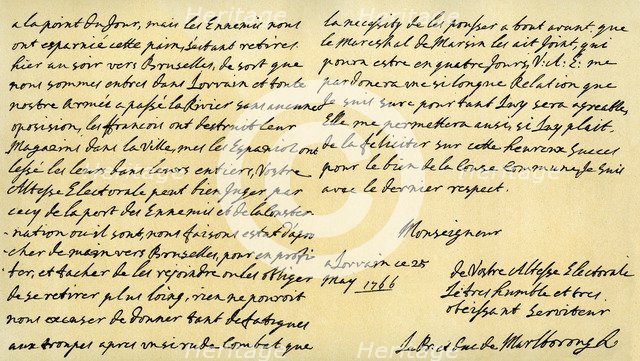 a la point du Jour, mais les Ennemis nous
ont esparnié cette pain, s'estant retires
hier au soir vers Bruselles, de sort que
nous sommes entres dans Lovvain et toute
nostre Armée a passé la Rivier sans aucune
oposision, les francois ont destruit leur
Magazins dans la Ville, mes les Espaniols ont
lessé les leurs dans leurs entiers, Vostre
Altesse Electorale peut bien Juger par
cecy de la port des Ennemis et de la Conster-
nation ou il sont, nous faisons estat d'apro-
cher demain vers Bruselles, pour en profi-
ter, et tacher de les rejoindre ou les obliger
de se retirer plus loing, rien ne pouvoit
nous excuser de donner tant de fatigues
aux troupes apres un si rude Combet que
la necessity de les pousser a bout avant que
le Mareshal de Marsin les ait Joint, qui
poura estre en quatre Jours, V: A: E: me
pardonera une si longue Relation que
Je suis sure pourtant Luy sera agreable,
Elle me permettera ausi, si Luy plait,
de la feliciter sur cette heureux Succes
pour le bien de la Cause Commune, Je suis
avec le dernier respect.
Monseigneur
a Lovvain ce 25
May 1706
de Vostre Altesse Electorale
Le tres humble et tres
obeissant Serviteur
Le Pr. et Duc de Marlborough
Heritage